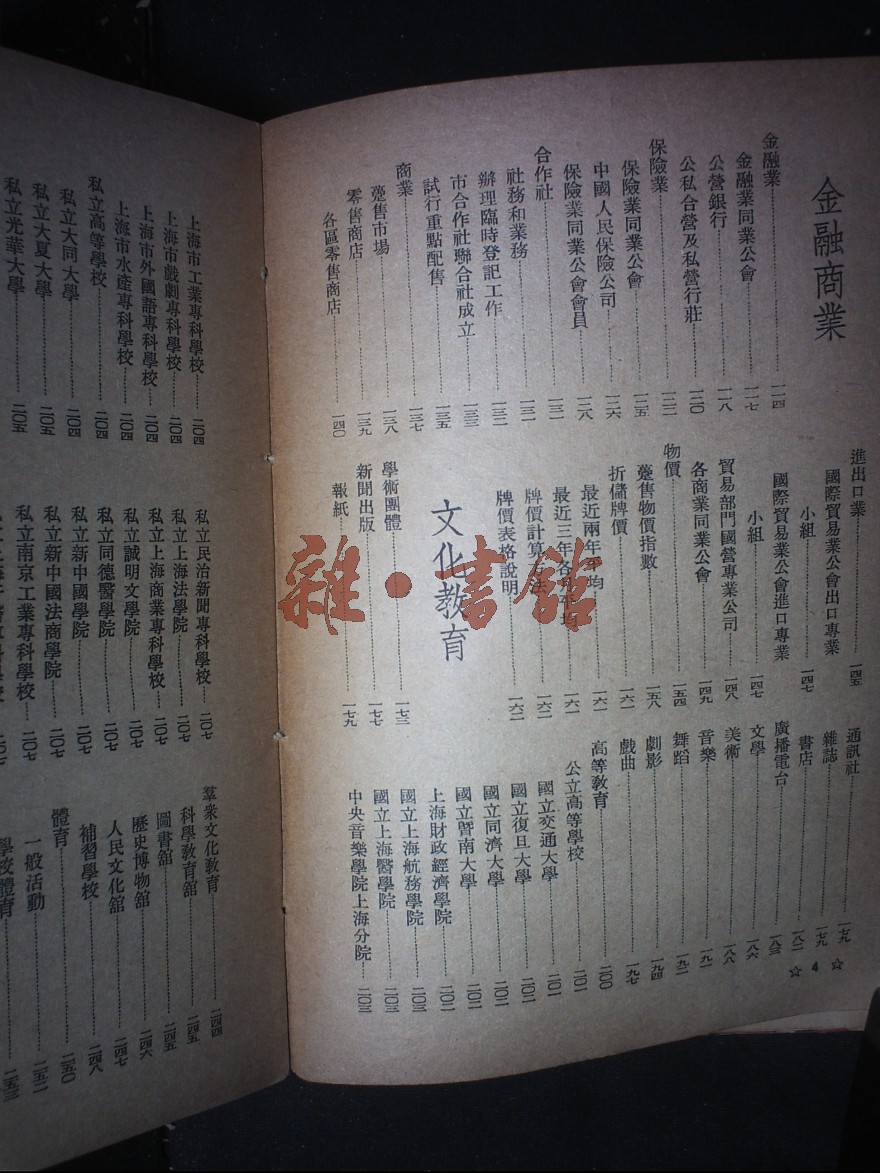 金融商業
金融業……一一四
金融業同業公會……一一七
公營銀行……一一八
公私合營及私營行莊……一二〇
保險業……一二三
保險業同業公會……一二五
中國人民保險公司……一二六
保險業同業公會會員……一二八
合作社……一三一
社務和業務……一三一
辦理臨時登記工作……一三三
市合作社聯合社成立……一三三
試行重點配售……一三五
商業……一三七
躉售市場……一三八
零售商店……一三九
各區零售商店……一四〇
進出口業……一四五
國際貿易業公會出口專業
小組……一四七
國際貿易業公會進口專業
小組……一四七
貿易部門國營專業公司……一四八
各商業同業公會……一四九
物價……一五四
躉售物價指數……一五八
折儲牌價……一六一
最近兩年平均……一六一
最近三年各月平均……一六一
牌價計算方法……一六二
牌價表格說明……一六二
文化教育
學術團體……一七三
新聞出版……一七七
報紙……一七九
通訊社……一七九
雜誌……一七九
書店……一八一
廣播電台……一八三
文學……一八六
美術……一八八
音樂……一九一
舞蹈……一九二
劇影……一九四
戲曲……一九七
高等教育……二〇〇
公立高等學校……二〇一
國立交通大學……二〇一
國立復旦大學……二〇二
國立同濟大學……二〇二
國立暨南大學……二〇二
上海財政經濟學院……二〇二
國立上海航務學院……二〇三
國立上海醫學院……二〇三
中央音樂學院上海分院……二〇三
☆ 4 ☆
上海市工業專科學校……二〇四
上海市戲劇專科學校……二〇四
上海市外國語專科學校……二〇四
上海市水產專科學校……二〇四
私立高等學校……二〇四
私立大同大學……二〇四
私立大夏大學……二〇五
私立光華大學……二〇五
私立民治新聞專科學校……二〇七
私立上海法學院……二〇七
私立上海商業專科學校……二〇七
私立誠明文學院……二〇七
私立同德醫學院……二〇七
私立新中國學院……二〇七
私立新中國法商學院……二〇七
私立南京工業專科學校……二〇七
羣衆文化教育……二四四
科學教育館……二四五
圖書館……二四五
歷史博物館……二四六
人民文化館……二四七
補習學校……二四八
體育……二五〇
一般活動……二五二
學校體育……二五三
雜·書館